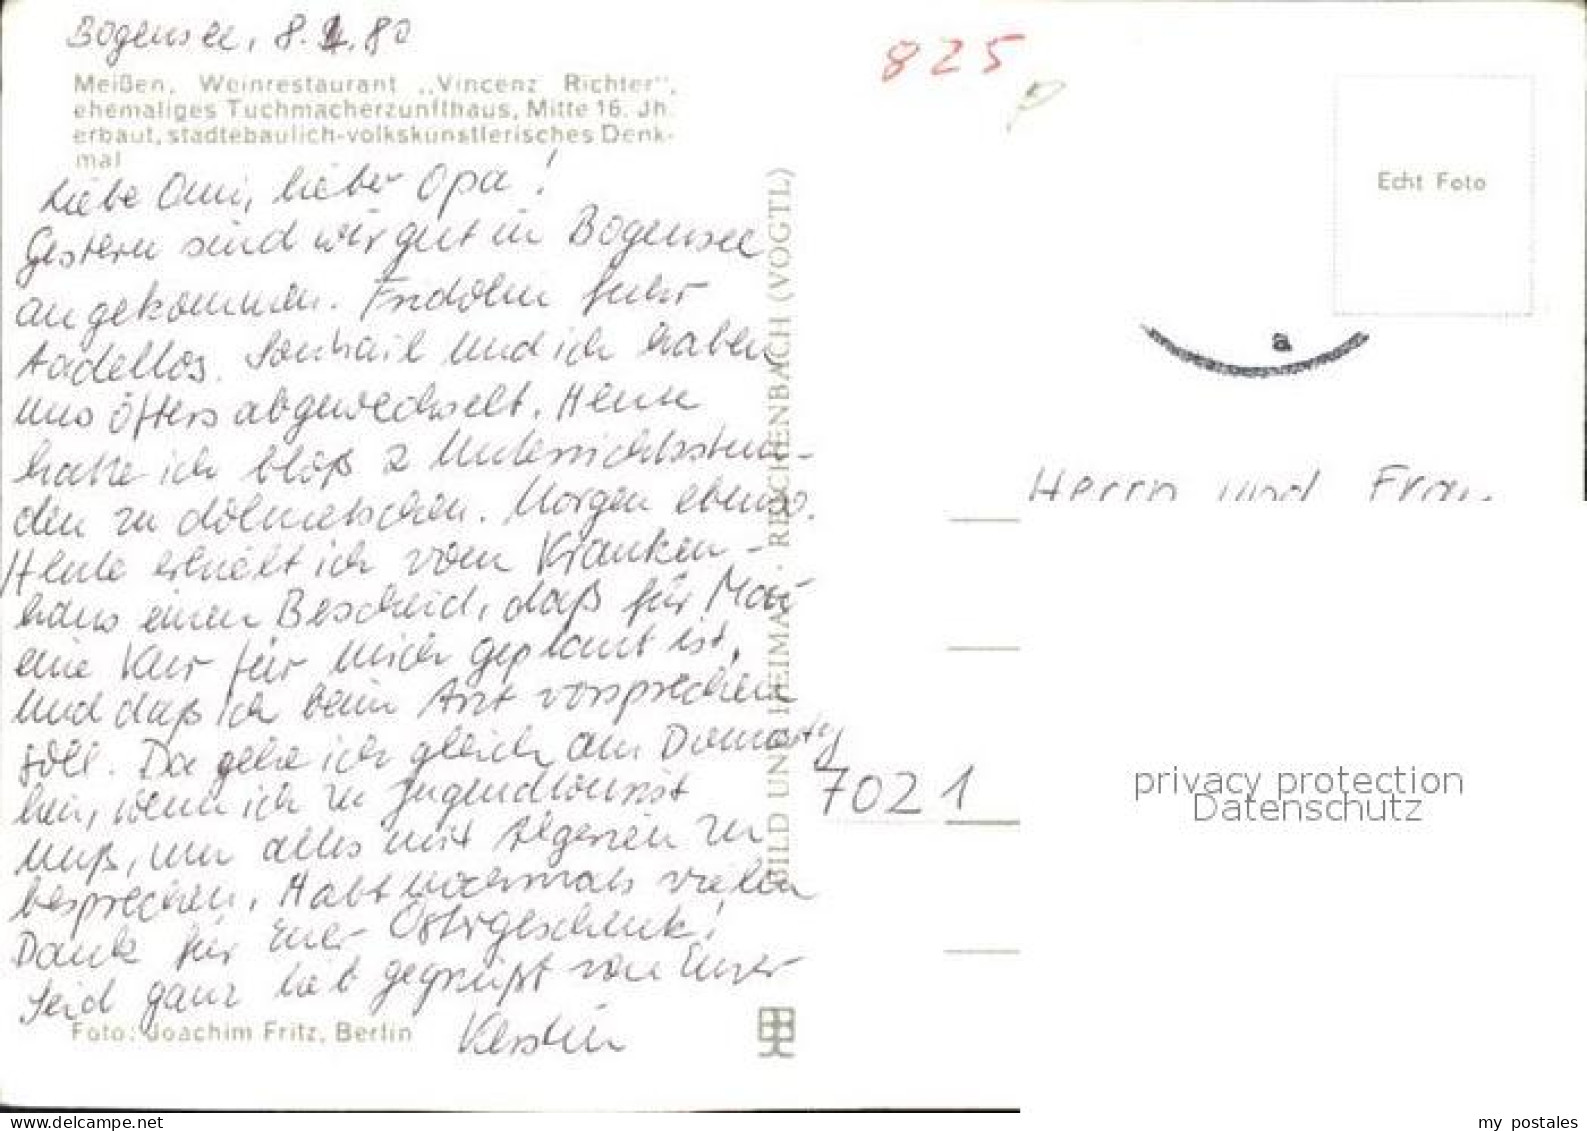 Bogensee, 8.4.80
Meißen, Weinrestaurant „Vincenz Richter",
ehemaliges Tuchmacherzunfthaus, Mitte 16. Jh.
erbaut, städtebaulich-volkskünstlerisches Denk-
mal
Liebe Omi, lieber Opa!
Gestern sind wir gut in Bogensee
angekommen. Fridolin fuhr
tadellos. Souhail und ich haben
uns öfters abgewechselt. Heute
hatte ich bloß 2 Unterrichtsstun-
den zu dolmetschen. Morgen ebenso.
Heute erhielt ich vom Kranken-
haus einen Bescheid, daß für Mai
eine Kur für mich geplant ist,
und daß ich beim Arzt vorsprechen
soll. Da gehe ich gleich am Donnerstag
hin, wenn ich zu Jugendtourist
muß, um alles mit Algerien zu
besprechen. Habt nochmals vielen
Dank für Euer Ostergeschenk!
Seid ganz lieb gegrüßt von Eurer
Kerstin
Foto: Joachim Fritz, Berlin
BILD UND HEIMAT · REICHENBACH (VOGTL)
825
Echt Foto
a
Herrn und Frau
7021
privacy protection
Datenschutz
my postales